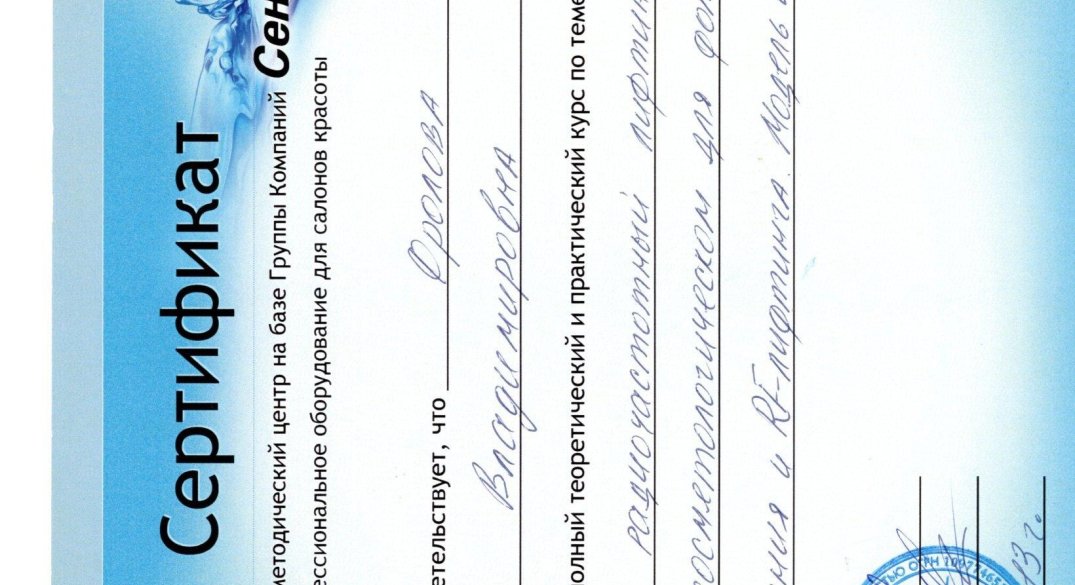 Сертификат
етодический центр на базе Группы Компаний Сен
ессиональное оборудование для салонов красоты
етельствует, что Фролова
Владимировна
олный теоретический и практический курс по теме
радиочастотный лифтин
осметологическом для фо
ния и RF-лифтинга Модель
ТЬЮ ОГРН
13 г.